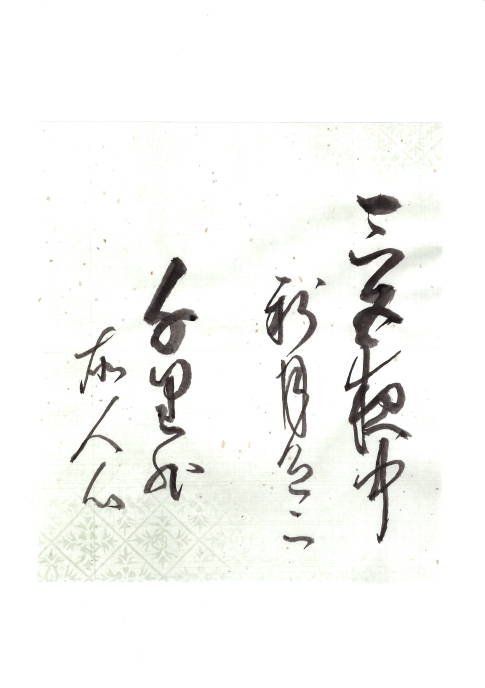 三五夜中
新月色二
千里外
故人心